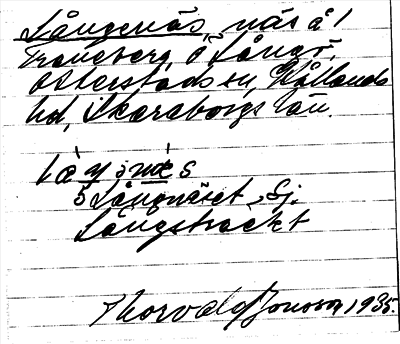 Långenäs, näs å l
Traneberg, ö Lång.
Otterstads sn, Kållands
hd, Skaraborgs län.
lå̀ŋənæ̀s
5 Långnäset, Sj.
Långstrackt
Thorvald Jonson, 1935.